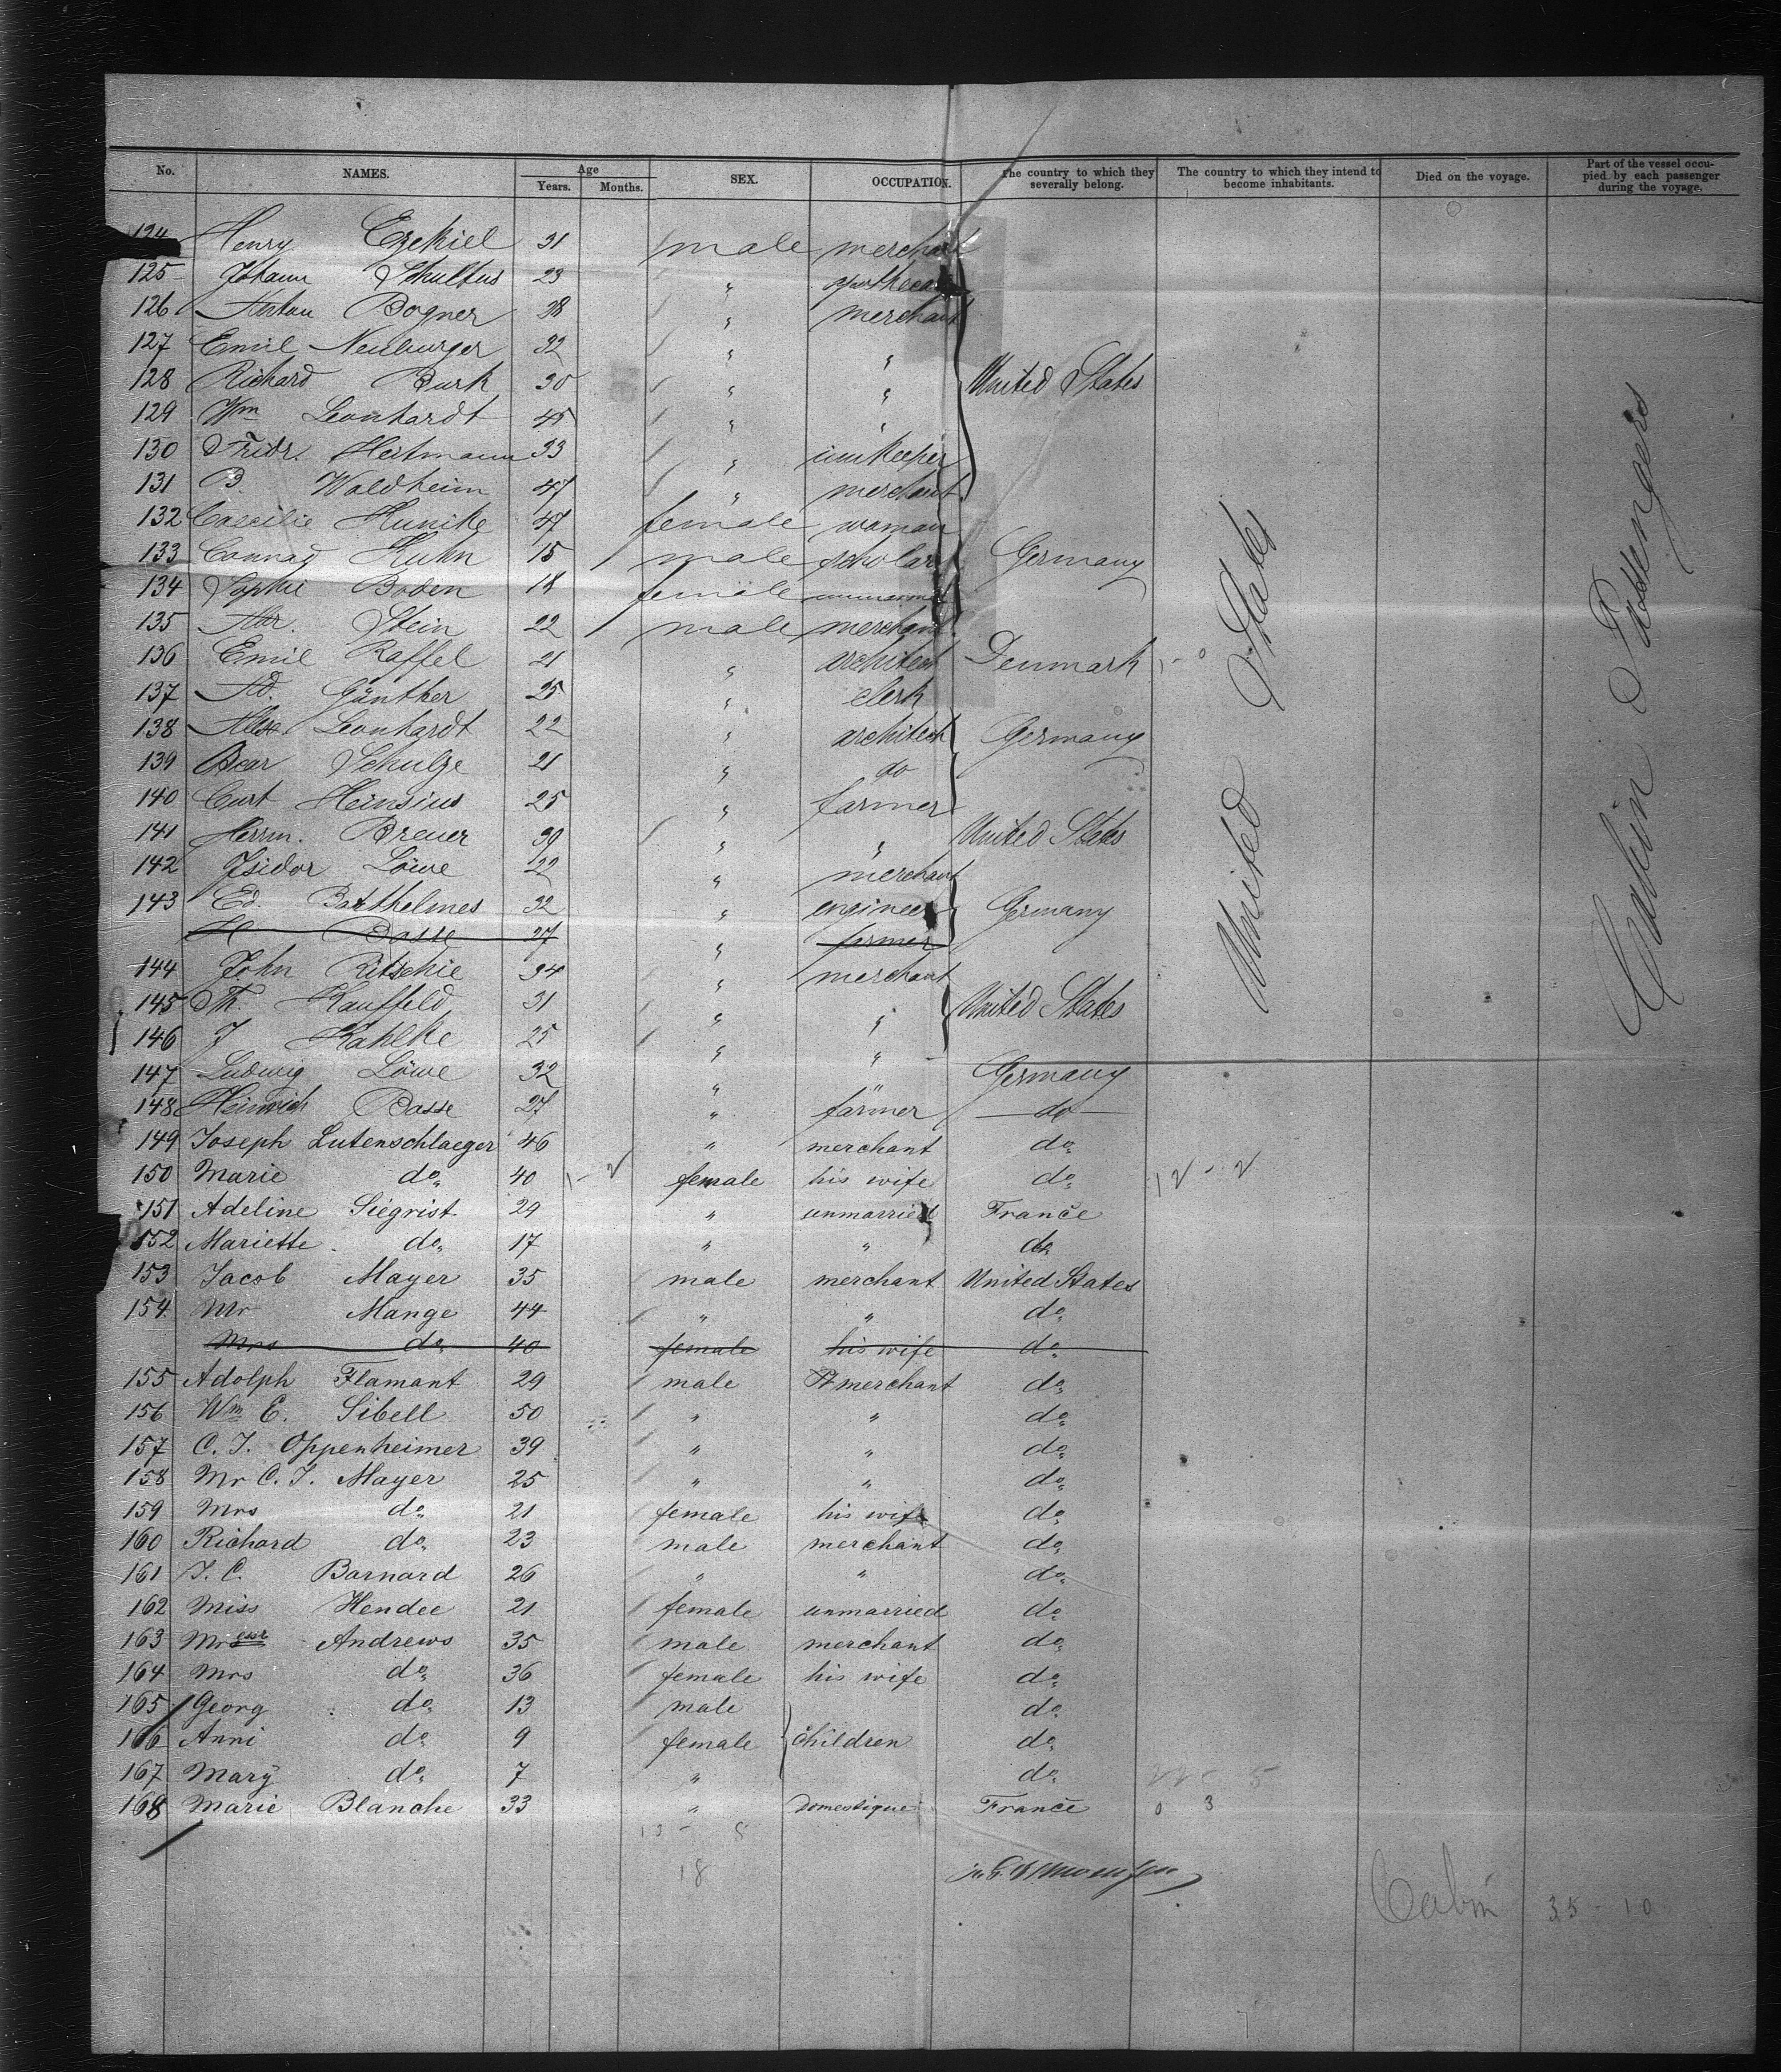 No. NAMES. Age Years. Months. SEX. OCCUPATION. The country to which they severally belong. The country to which they intend to become inhabitants. Died on the voyage. Part of the vessel occupied by each passenger during the voyage.
124 Henry Ezekiel 31 male merchant
125 Johann Schultus 23 " apothecary
126 Anton Bogner 38 " merchant
127 Emil Neuburger 32 " "
128 Richard Burk 30 " " United States
129 Wm Leonhardt 45 " "
130 Fridr. Heitmann 33 " innkeeper
131 B. Waldheim 47 " merchant
132 Caecilie Hunike 47 female woman
133 Conrad Kuhn 15 male scholar Germany
134 Sophie Boden 18 female unmarried
135 Abr. Stein 22 male merchant
136 Emil Raffel 21 " architect Denmark
137 Ad. Günther 25 " clerk
138 Alex. Leonhardt 22 " architect Germany
139 Bear Schulze 21 " do
140 Curt Heinsius 25 " farmer
141 Herrm. Breuer 39 " " United States
142 Isidor Löwe 22 " merchant
143 Ed. Barthelmes 32 " engineer Germany
H Basse 27 " farmer
144 John Ritschie 34 " merchant
145 Th. Kauffeld 31 " " United States
146 J Kahlke 25 " "
147 Ludwig Löwe 32 " " Germany
148 Heinrich Basse 27 " farmer do
149 Joseph Lutenschlaeger 46 " merchant do
150 Marie do 40 female his wife do
151 Adeline Siegrist 29 " unmarried France
152 Mariette do 17 " " do
153 Jacob Mayer 35 male merchant United States
154 Mr Mange 44 " " do
Mrs do 40 female his wife do
155 Adolph Flamant 29 male merchant do
156 Wm E. Sibell 50 " " do
157 C. I. Oppenheimer 39 " " do
158 Mr C. I. Mayer 25 " " do
159 Mrs do 21 female his wife do
160 Richard do 23 male merchant do
161 I. C. Barnard 26 " " do
162 Miss Hendee 21 female unmarried do
163 Mr Andrews 35 male merchant do
164 Mrs do 36 female his wife do
165 Georg do 13 male do
166 Anni do 9 female children do
167 Mary do 7 " do
168 Marie Blanche 33 " Domestique France 0 3
United States
Cabin Passengers
18
Cabin 35 - 10